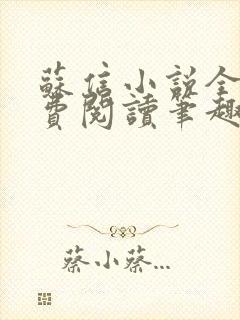 蘇信小說全
費閱讀筆趣
蔡小蔡...